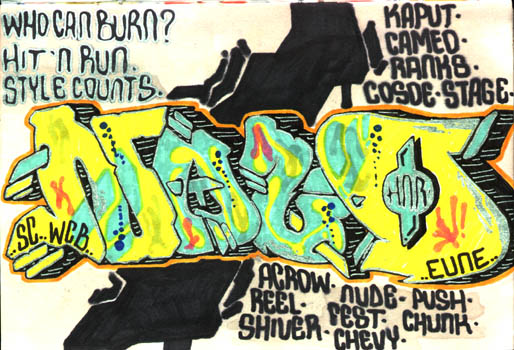 WHO CAN BURN?
HIT 'N RUN.
STYLE COUNTS.
KAPUT.
CAMEO.
RANKS.
COSOE. STAGE.
HNR
SC.. WCB.
..EUNE..
ACROW. NUDE. PUSH.
REEL. FEST. CHUNK.
SHIVER. CHEVY.